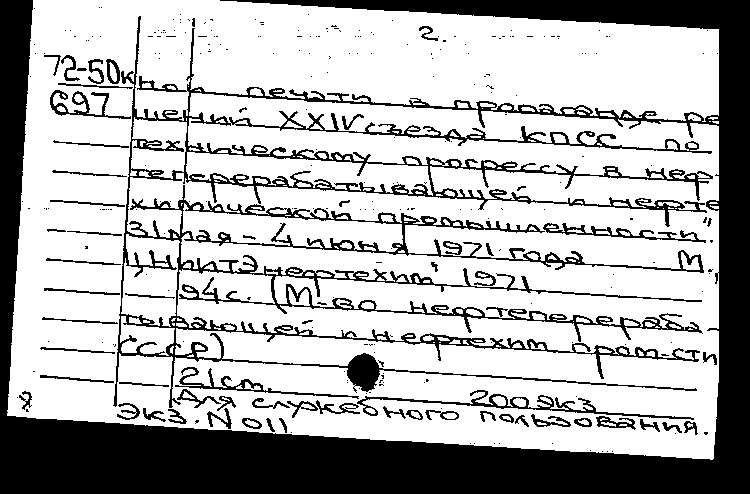 2.
72-50к
697
ной печати в пропаганде ре
шений XXIV съезда КПСС по
техническому прогрессу в неф
теперерабатывающей и нефте
химической промышленности".
31 мая - 4 июня 1971 года. М.,
ЦНИИТЭнефтехим", 1971.
94с. (М-во нефтеперераба-
тывающей и нефтехим пром-сти
СССР)
21 см. 200 экз
Для служебного пользования.
Экз. N 011